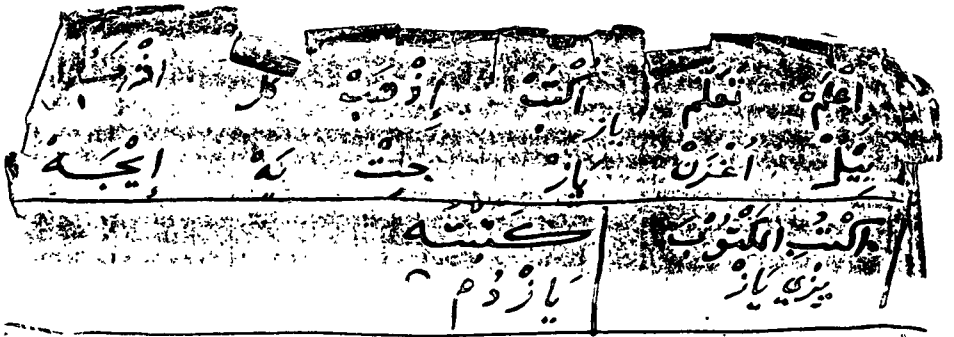 إِعْلَمْ تَعَلَّمْ اُكْتُبْ إِذْهَبْ كُلْ
ياز
بِيلْ اُغْرَنْ يَازْ جِتْ يَهْ إِيْجَهْ
اُكْتُبِ الْمَكْتُوبَ كَتَبْتُه
بِيْزِي يَازْ يَازْدُم